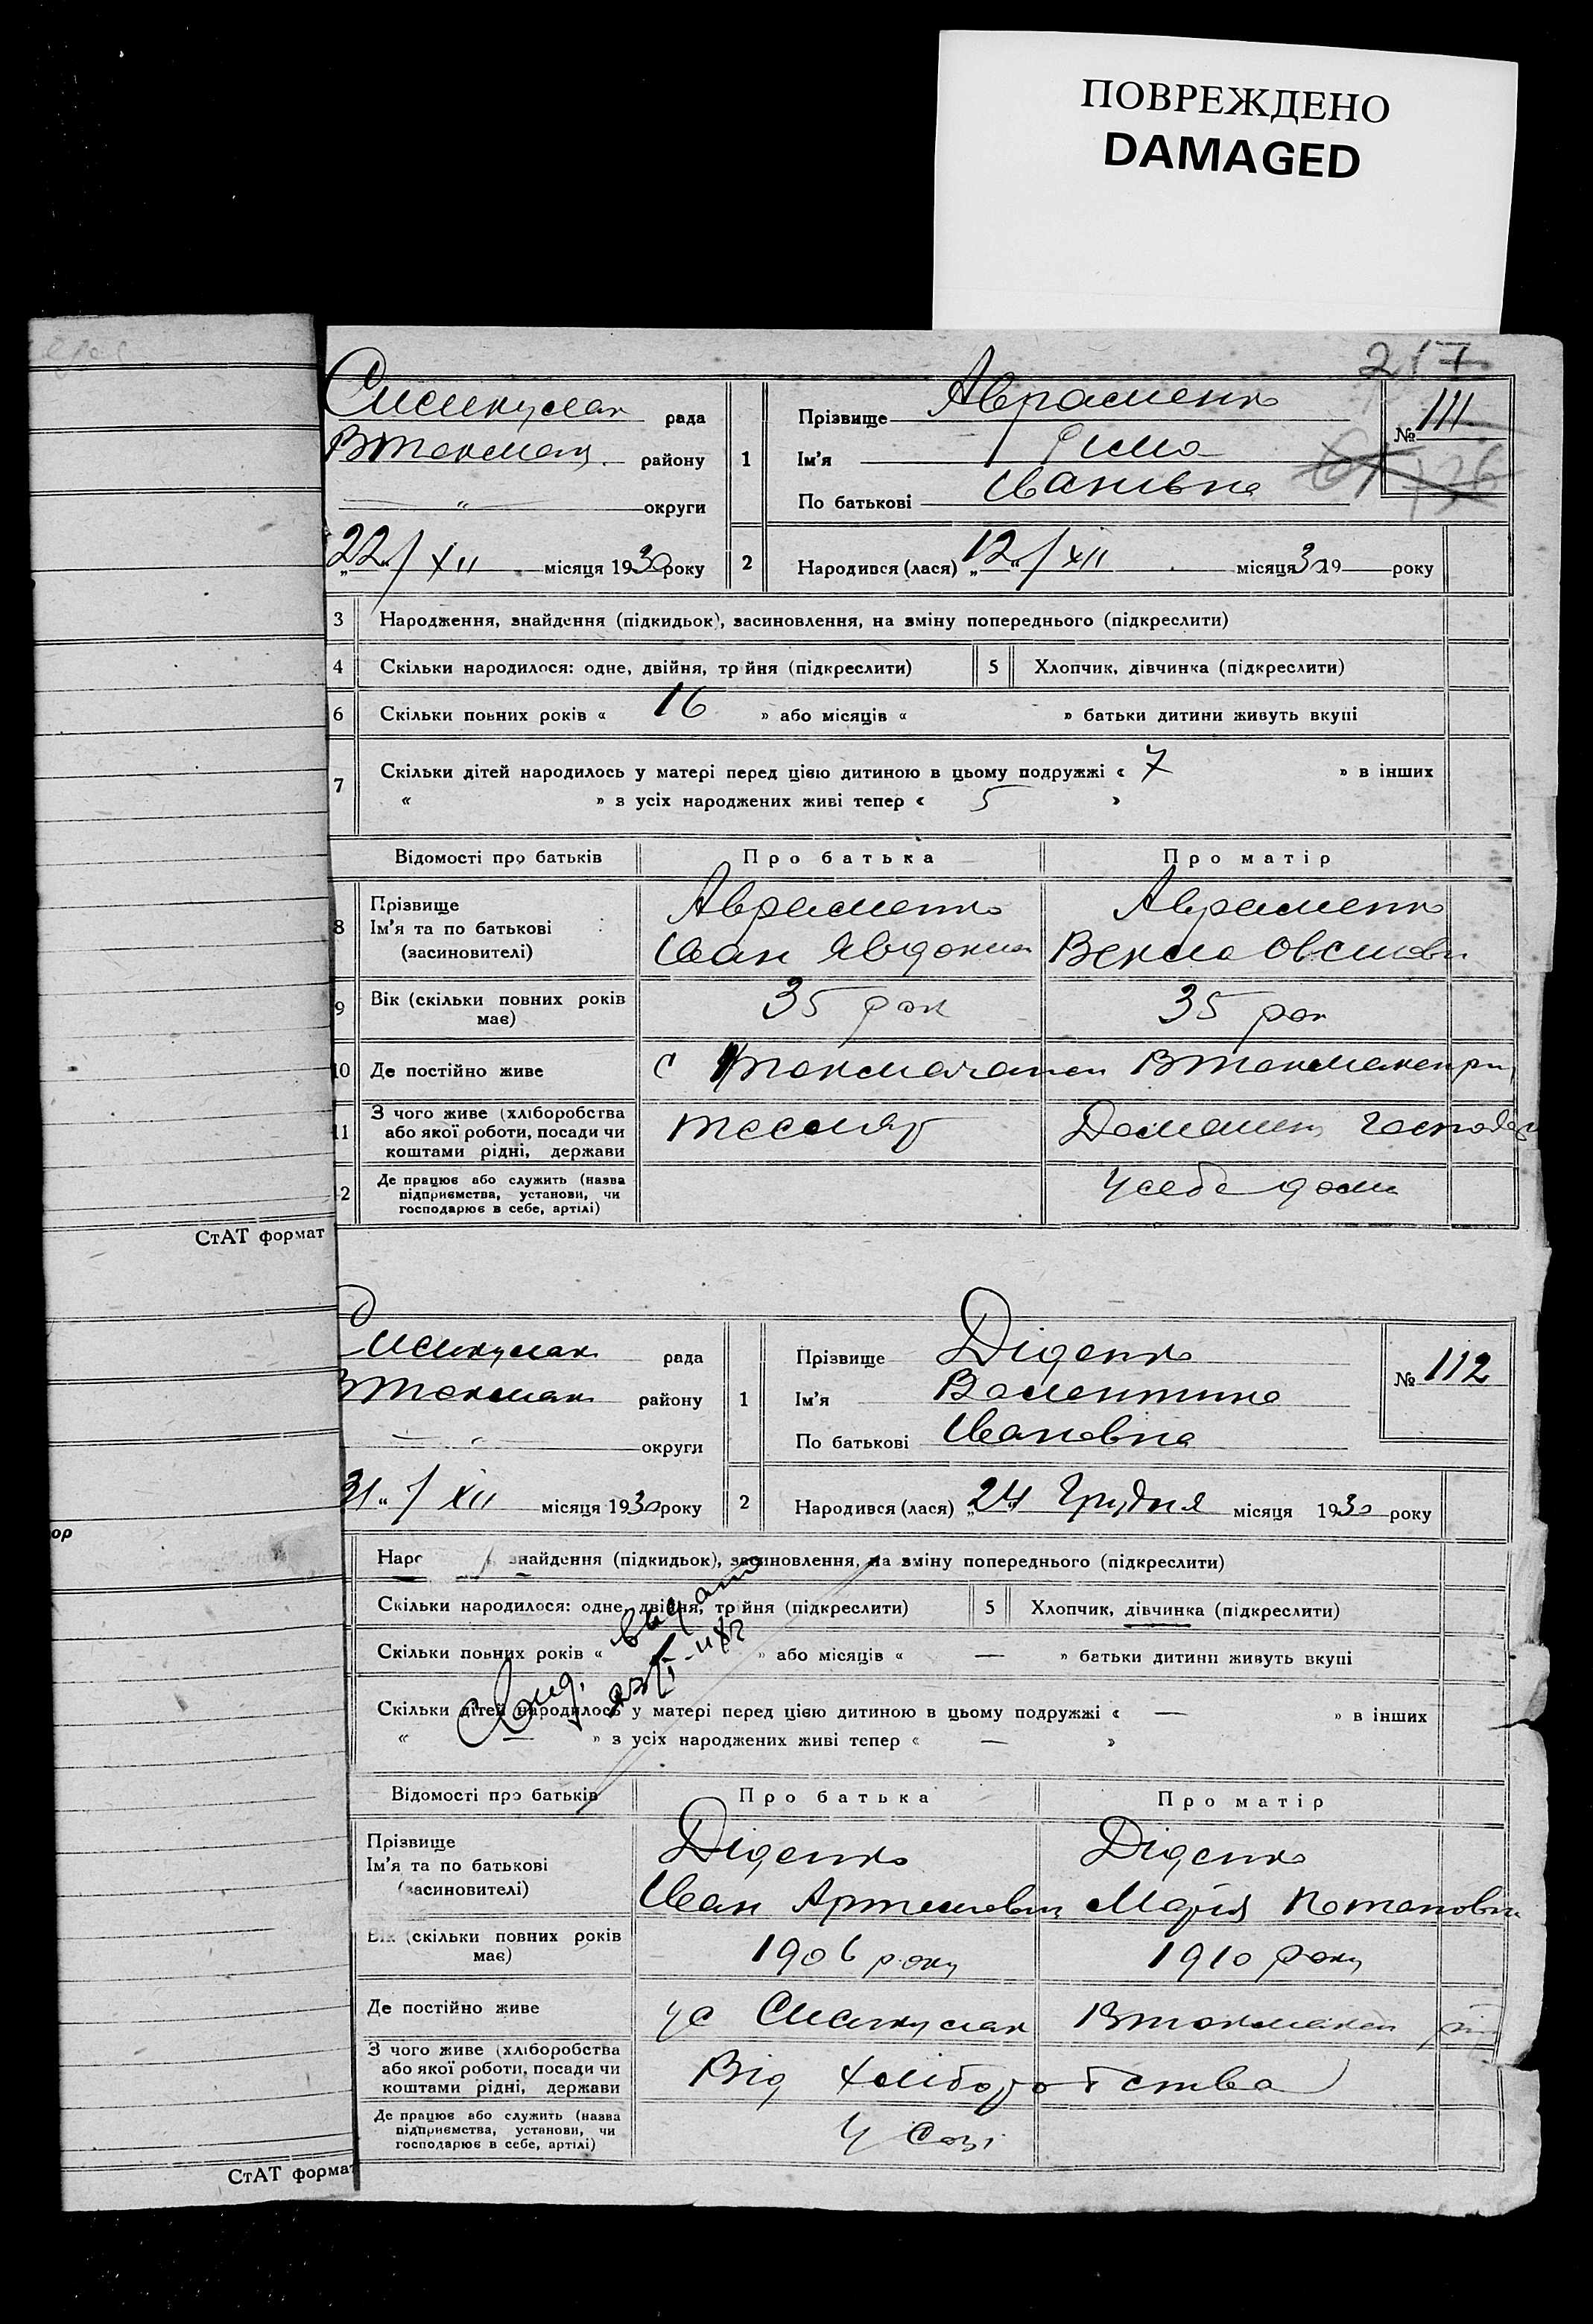 ПОВРЕЖДЕНО
DAMAGED
217
рада
Прізвище Авраменко
№ 111
району
1
Ім'я
По батькові Іванівна
округи
22/XII місяця 1930 року
2
Народився (лася) „12“/XII місяця 30 19 року
3 Народження, знайдення (підкидьок), засиновлення, на зміну попереднього (підкреслити)
4 Скільки народилося: одне, двійня, трійня (підкреслити)
5 Хлопчик, дівчинка (підкреслити)
6 Скільки повних років « 16 » або місяців « » батьки дитини живуть вкупі
7 Скільки дітей народилось у матері перед цією дитиною в цьому подружжі « 7 » в інших
« » з усіх народжених живі тепер « 5 »
Відомості про батьків
Про батька
Про матір
8
Прізвище
Ім'я та по батькові
(засиновителі)
Авраменко
Іван Явдоким
Авраменко
Векла
9
Вік (скільки повних років
має)
35 рок
35 рок
10 Де постійно живе
с
11
З чого живе (хліборобства
або якої роботи, посади чи
коштами рідні, держави
тесляр
Домашн господар
12
Де працює або служить (назва
підприємства, установи, чи
господарює в себе, артілі)
у себе дома
СтАТ формат
рада
Прізвище Діденко
№ 112
Втокмак району
1
Ім'я Валентина
По батькові Івановна
округи
31“/XII місяця 1930 року
2
Народився (лася) „24“ Грудня місяця 1930 року
ор
Наро знайдення (підкидьок), засиновлення, на зміну попереднього (підкреслити)
Скільки народилося: одне, двійня, трійня (підкреслити)
5 Хлопчик, дівчинка (підкреслити)
Скільки повних років « » або місяців « — » батьки дитини живуть вкупі
Скільки дітей народилось у матері перед цією дитиною в цьому подружжі « — » в інших
« — » з усіх народжених живі тепер « — »
Відомості про батьків
Про батька
Про матір
Прізвище
Ім'я та по батькові
(засиновителі)
Діденко
Іван Артемович
Діденко
Марія Потаповн
Вік (скільки повних років
має)
1906 року
1910 року
Де постійно живе
у с
З чого живе (хліборобства
або якої роботи, посади чи
коштами рідні, держави
Від хліборобства
Де працює або служить (назва
підприємства, установи, чи
господарює в себе, артілі)
У Созі
СтАТ формат